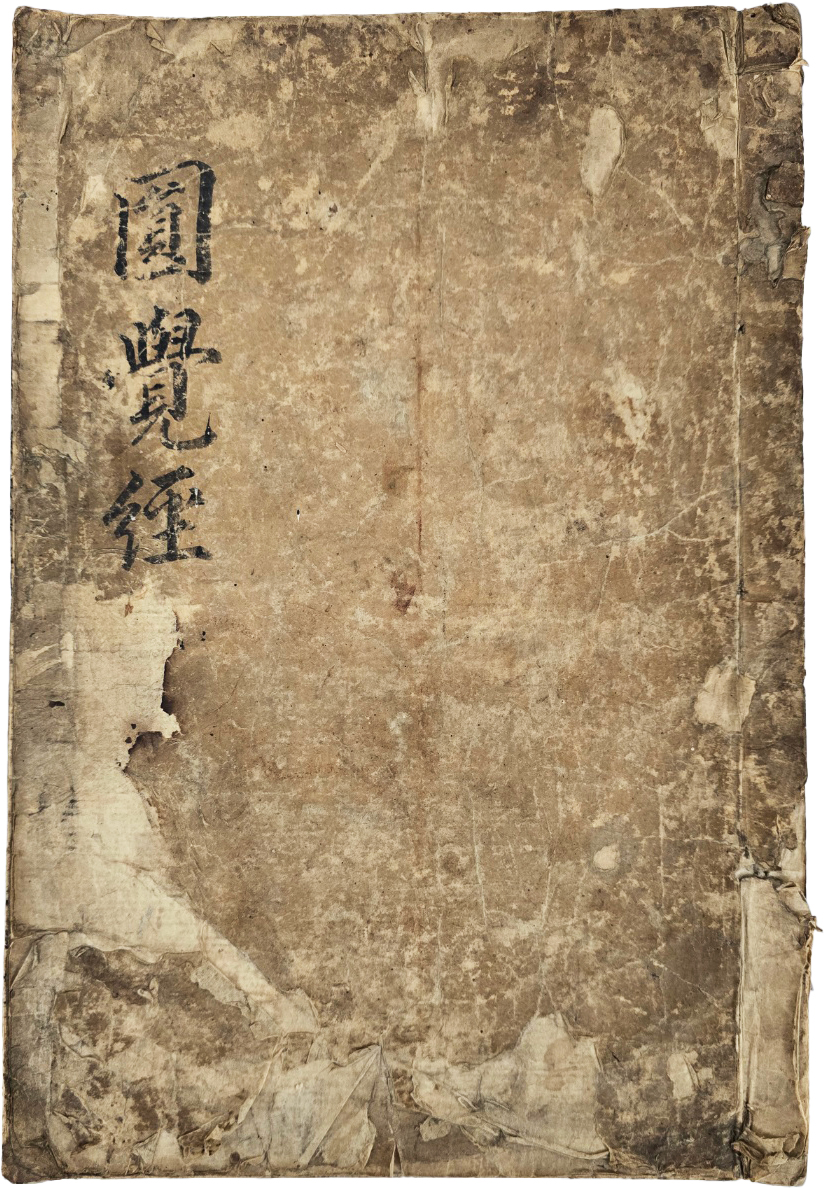 圓覺經